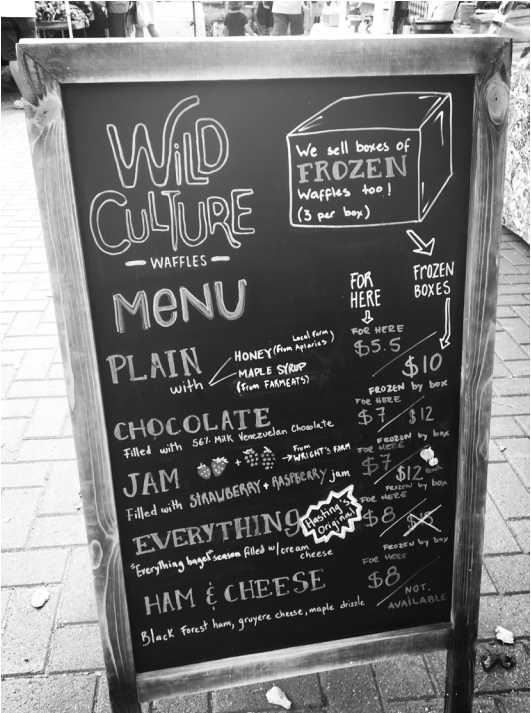 WILD
CULTURE
WAFFLES
MENU
We sell boxes of
FROZEN
Waffles too!
(3 per box)
FOR
HERE
FROZEN
BOXES
PLAIN
with
HONEY (From Apiaries)
Local Farm
MAPLE SYRUP
(From FARMEATS)
FOR HERE
$5.5
$10
FROZEN by box
CHOCOLATE
Filled with 56% Milk Venezuelan Chocolate
FOR HERE
$7
$12
FROZEN by box
JAM
+
From
WRIGHT'S FARM
Filled with STRAWBERRY + RASPBERRY jam
FOR HERE
$7
$12
FROZEN by box
EVERYTHING
Hasting's
Original
"Everything bagel" season filled w/ cream
cheese
FOR HERE
$8
FROZEN by box
HAM & CHEESE
Black Forest ham, gruyere cheese, maple drizzle
FOR HERE
$8
NOT
AVAILABLE